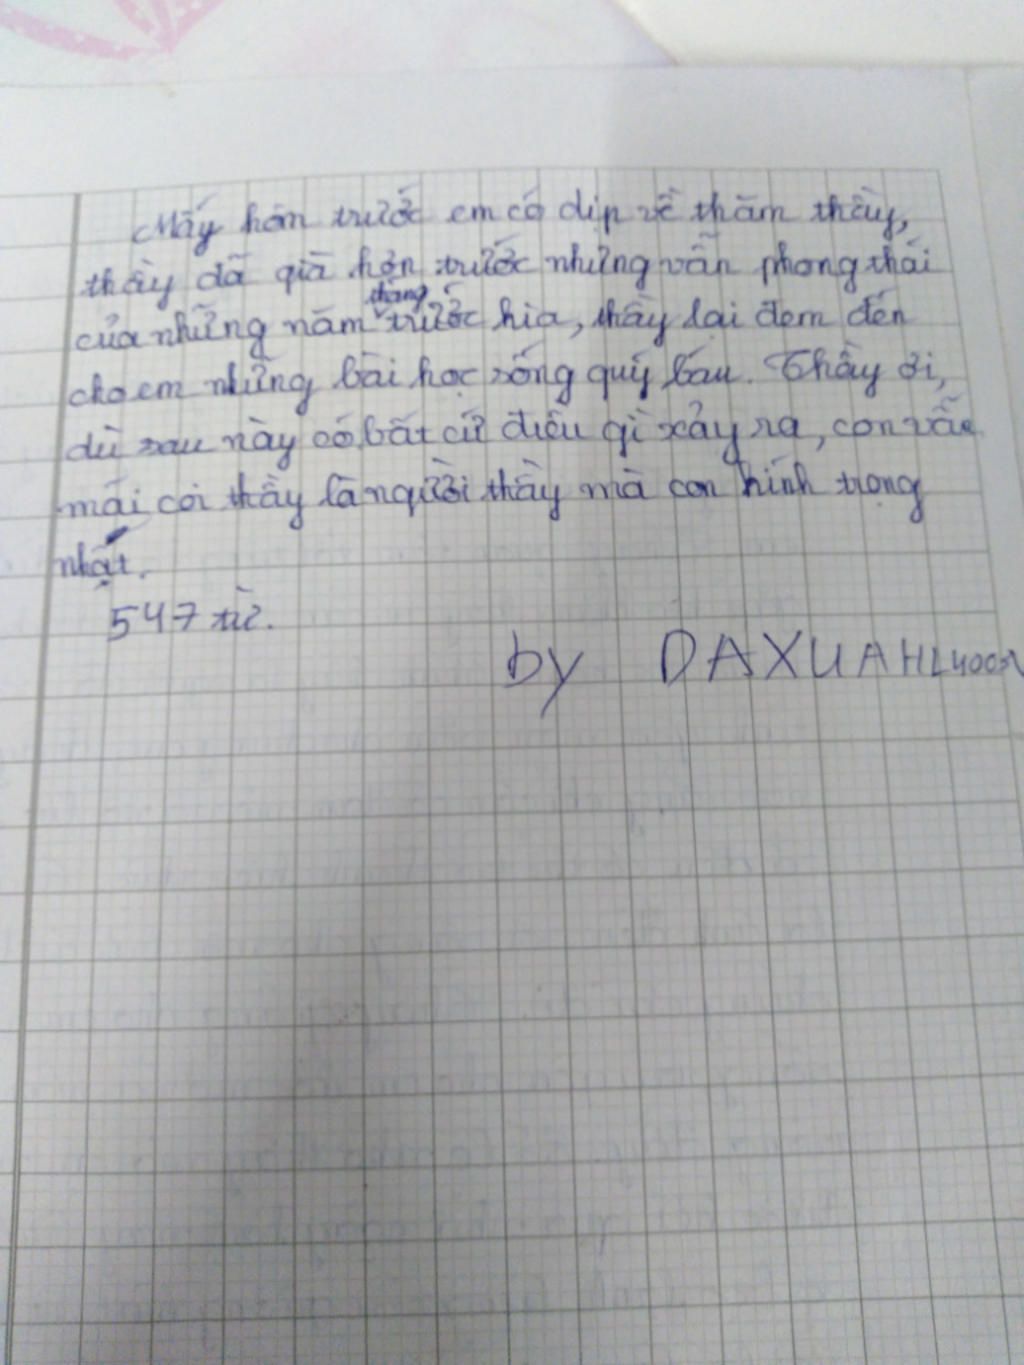 Mấy hôm trước em có dịp về thăm thầy,
thầy đã già hơn trước nhưng vẫn phong thái
của những năm tháng trước kia, thầy lại đem đến
cho em những bài học sống quý báu. Thầy ơi,
dù sau này có bất cứ điều gì xảy ra, con vẫn
mãi coi thầy là người thầy mà con kính trọng
nhất.
547 từ.
by DAXUAHL400N